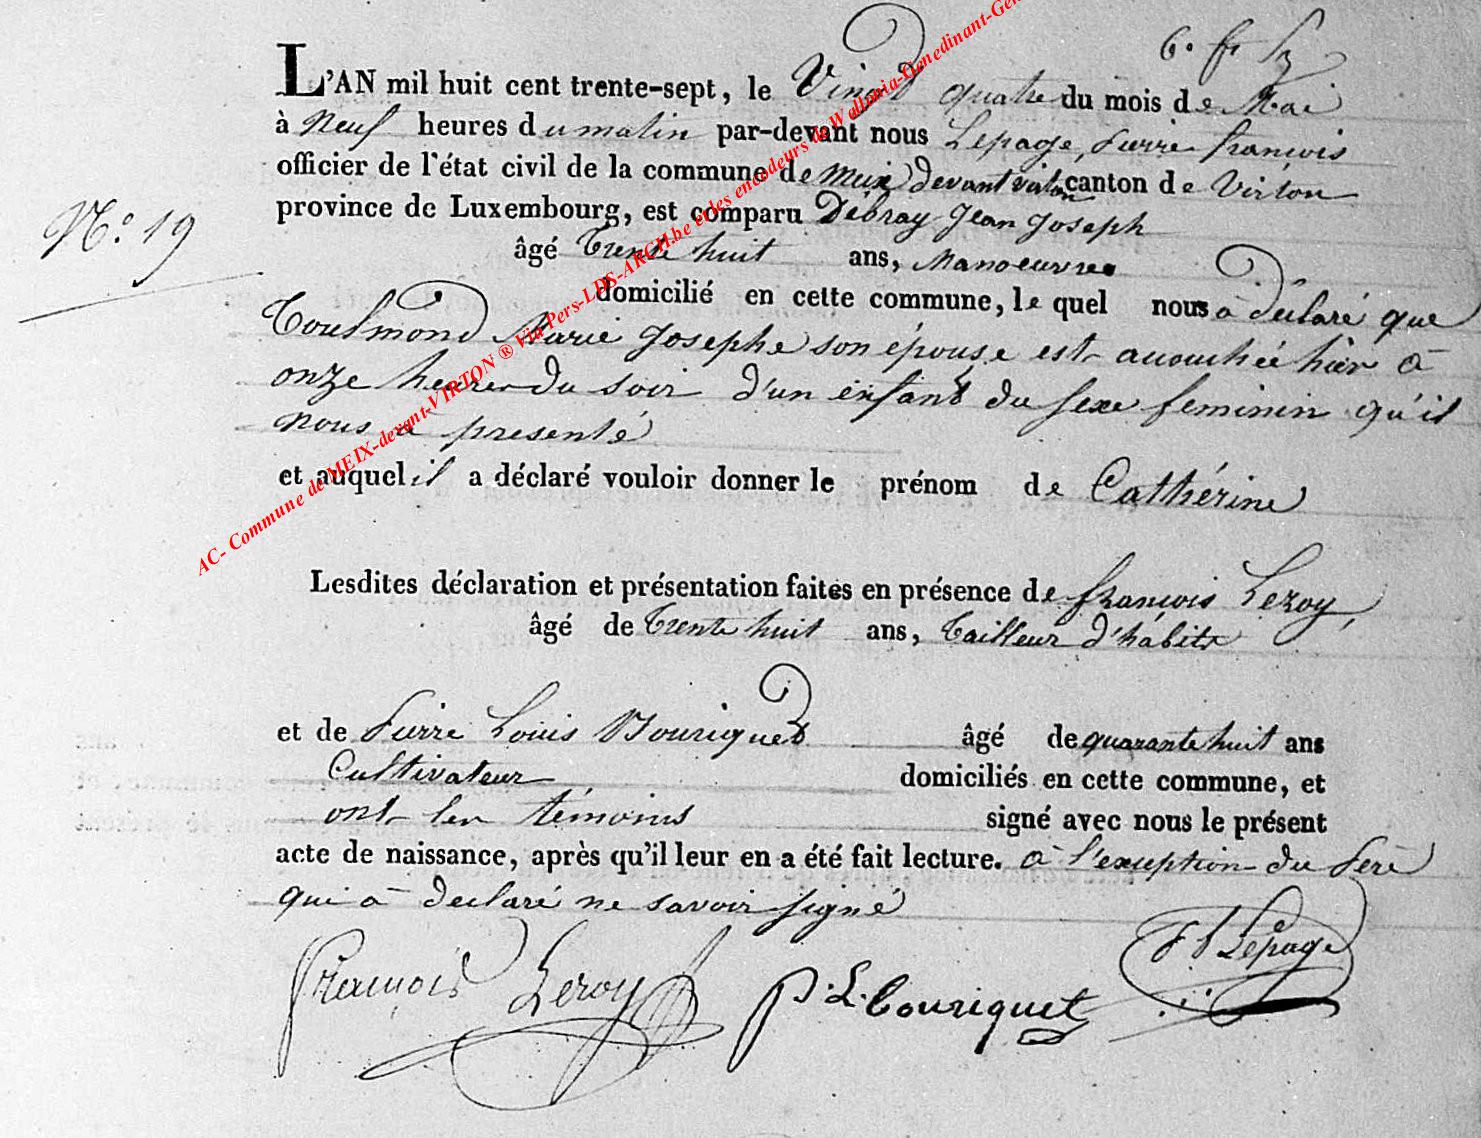 L'AN mil huit cent trente-sept, le Vingt quatre du mois de Mai
à Neuf heures du matin par-devant nous Lepage, Pierre françois
officier de l'état civil de la commune de Meix devant virton canton de Virton
province de Luxembourg, est comparu Débray Jean Joseph
N.º 19
âgé Trente huit ans, Manoeuvre
domicilié en cette commune, le quel nous à déclaré que
Toulmond Marie Josephe son épouse est accouchée hier à
onze heures du soir d'un enfant du sexe feminin qu'il
nous a présenté
et auquel il a déclaré vouloir donner le prénom de Cathérine
Lesdites déclaration et présentation faites en présence de françois Leroy,
âgé de Trente huit ans, Tailleur d'habits
et de Pierre Louis Bouriquet âgé de quarante huit ans
Cultivateur domiciliés en cette commune, et
ont les témoins signé avec nous le présent
acte de naissance, après qu'il leur en a été fait lecture. à l'exception du Père
qui à declaré ne savoir signé
François Leroy P. L. Bouriquet P f Lepage
AC- Commune de MEIX-devant-VIRTON ® Via Pers-LDS-ARCH.be et les encodeurs de Wallonia-Benedinant-Gen